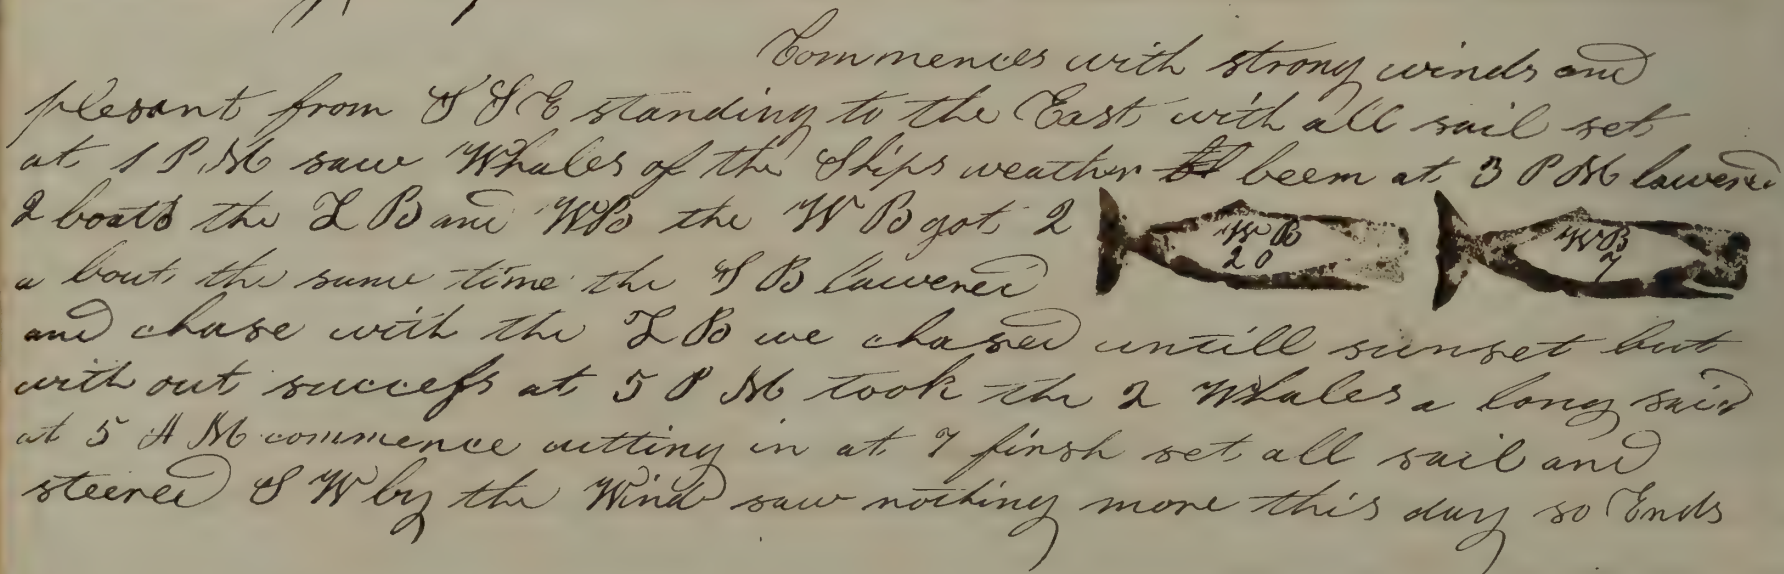 Commences with strong winds and
plesant from S S E standing to the East with all sail set
at 1 P.M saw Whales of the Ships weather beem at 3 P M lowered
2 boats the L B and WB the W B got 2
W B
20
W B
7
a bout the same time the S B lowered
and chase with the L B we chased untill sunset but
with out success at 5 P M took the 2 Whales a long said
at 5 A M commence cutting in at 7 finsh set all sail and
steered S W by the Wind saw nothing more this day so Ends